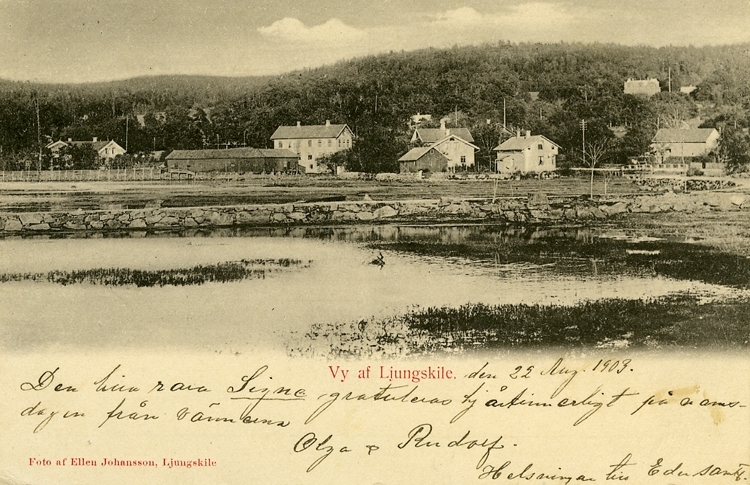 Vy af Ljungskile. den 22 Aug. 1903.
Den lilla rara Signe gratuleras hjärtinnerligt på nams-
dagen från vännerna
Olga & Rudolf.
Foto af Ellen Johansson, Ljungskile
Helsningar till Eder samtl.